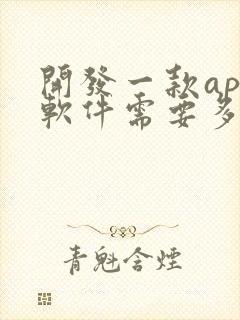 開發一款ap
軟件需要多
青魁含煙